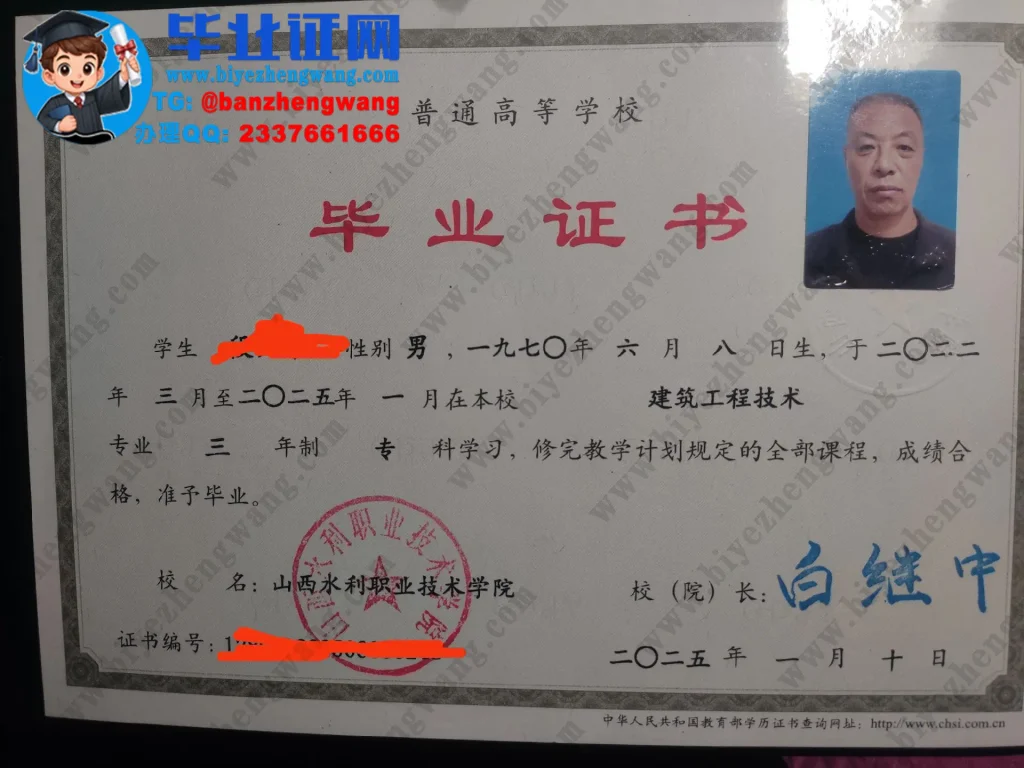 毕业证网
www.biyezhengwang.com
TG: @banzhengwang
办理QQ: 2337661666
普通高等学校
毕业证书
学生 段 性别 男 ，一九七〇年 六 月 八 日生，于二〇二二
年 三 月至二〇二五年 一 月在本校 建筑工程技术
专业 三 年制 专 科学习，修完教学计划规定的全部课程，成绩合
格，准予毕业。
校 名：山西水利职业技术学院
校（院）长：白继中
证书编号：
二〇二五 年 一 月 十 日
中华人民共和国教育部学历证书查询网址：http://www.chsi.com.cn
山西水利职业技术学院
www.biyezhengwang.com